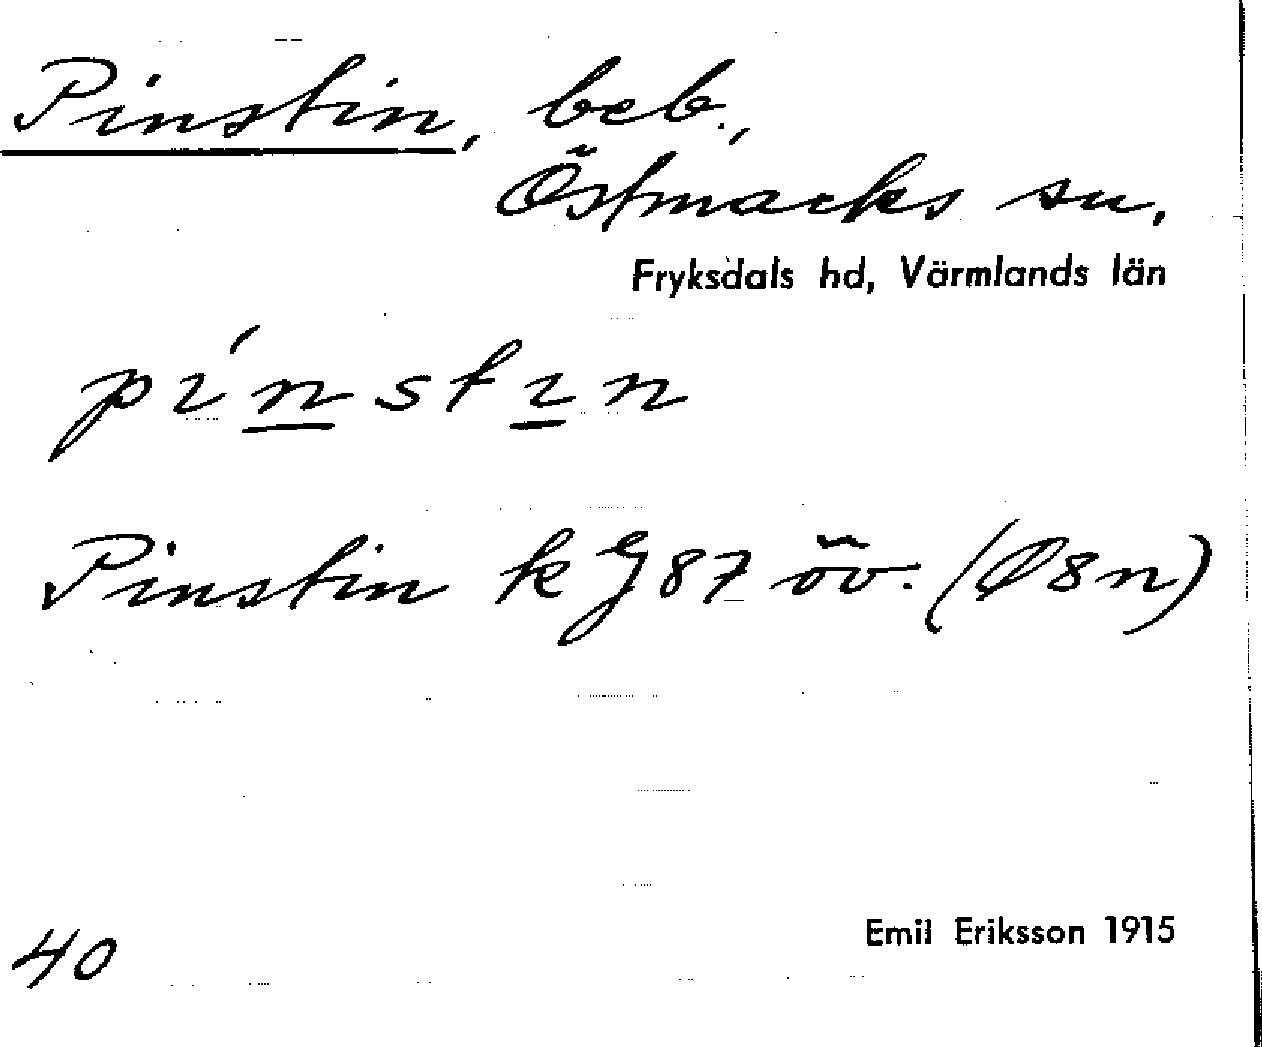 Pinstin, beb.,
Östmarks sn,
Fryksdals hd, Värmlands län
pi´nstin
Pinstin k G 87 öv. (Ø8n)
Emil Eriksson 1915
40